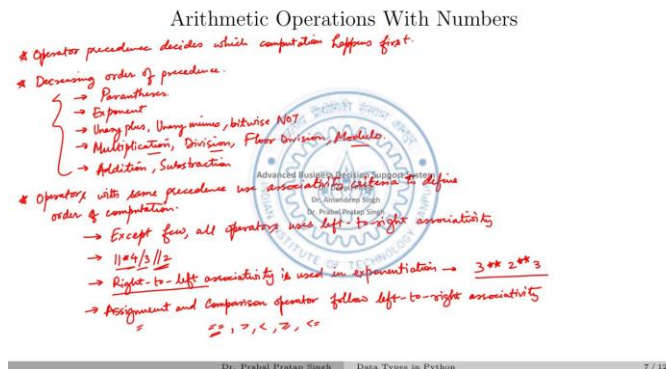 Arithmetic Operations With Numbers
* Operator precedence decides which computation happens first.
* Decreasing order of precedence.
→ Parantheses
→ Exponent
→ Unary plus, Unary minus, bitwise NOT
→ Multiplication, Division, Floor Division, Modulo.
→ Addition, Substraction
Advanced Business Decision Support System
* Operators with same precedence use associativity criteria to define
Dr. Amandeep Singh
order of computation.
Dr. Prabal Pratap Singh
→ Except few, all operators use left-to-right associativity
→ 11*4/3//2
→ Right-to-left associativity is used in exponentiation → 3** 2** 3
→ Assignment and Comparison operator follow left-to-right associativity
= ==, >, <, ≥, <=
INDIAN INSTITUTE OF TECHNOLOGY KANPUR
Dr. Prabal Pratap Singh Data Types in Python 7 / 12